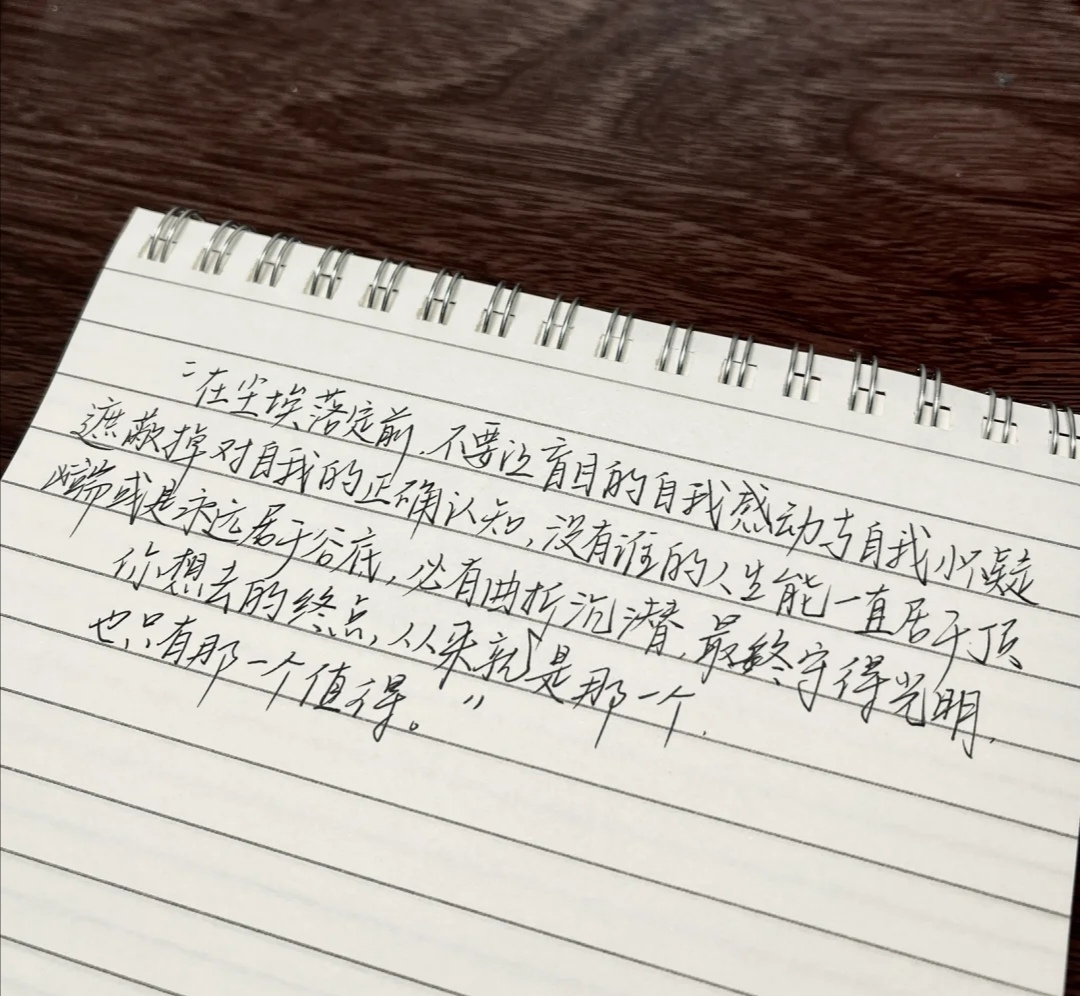 “在尘埃落定前，不要让盲目的自我感动与自我怀疑
遮蔽掉对自我的正确认知，没有谁的人生能一直居于顶
端或是永远居于谷底，必有曲折沉潜，最终守得光明，
你想去的终点，从来就是那一个，
也只有那一个值得。”